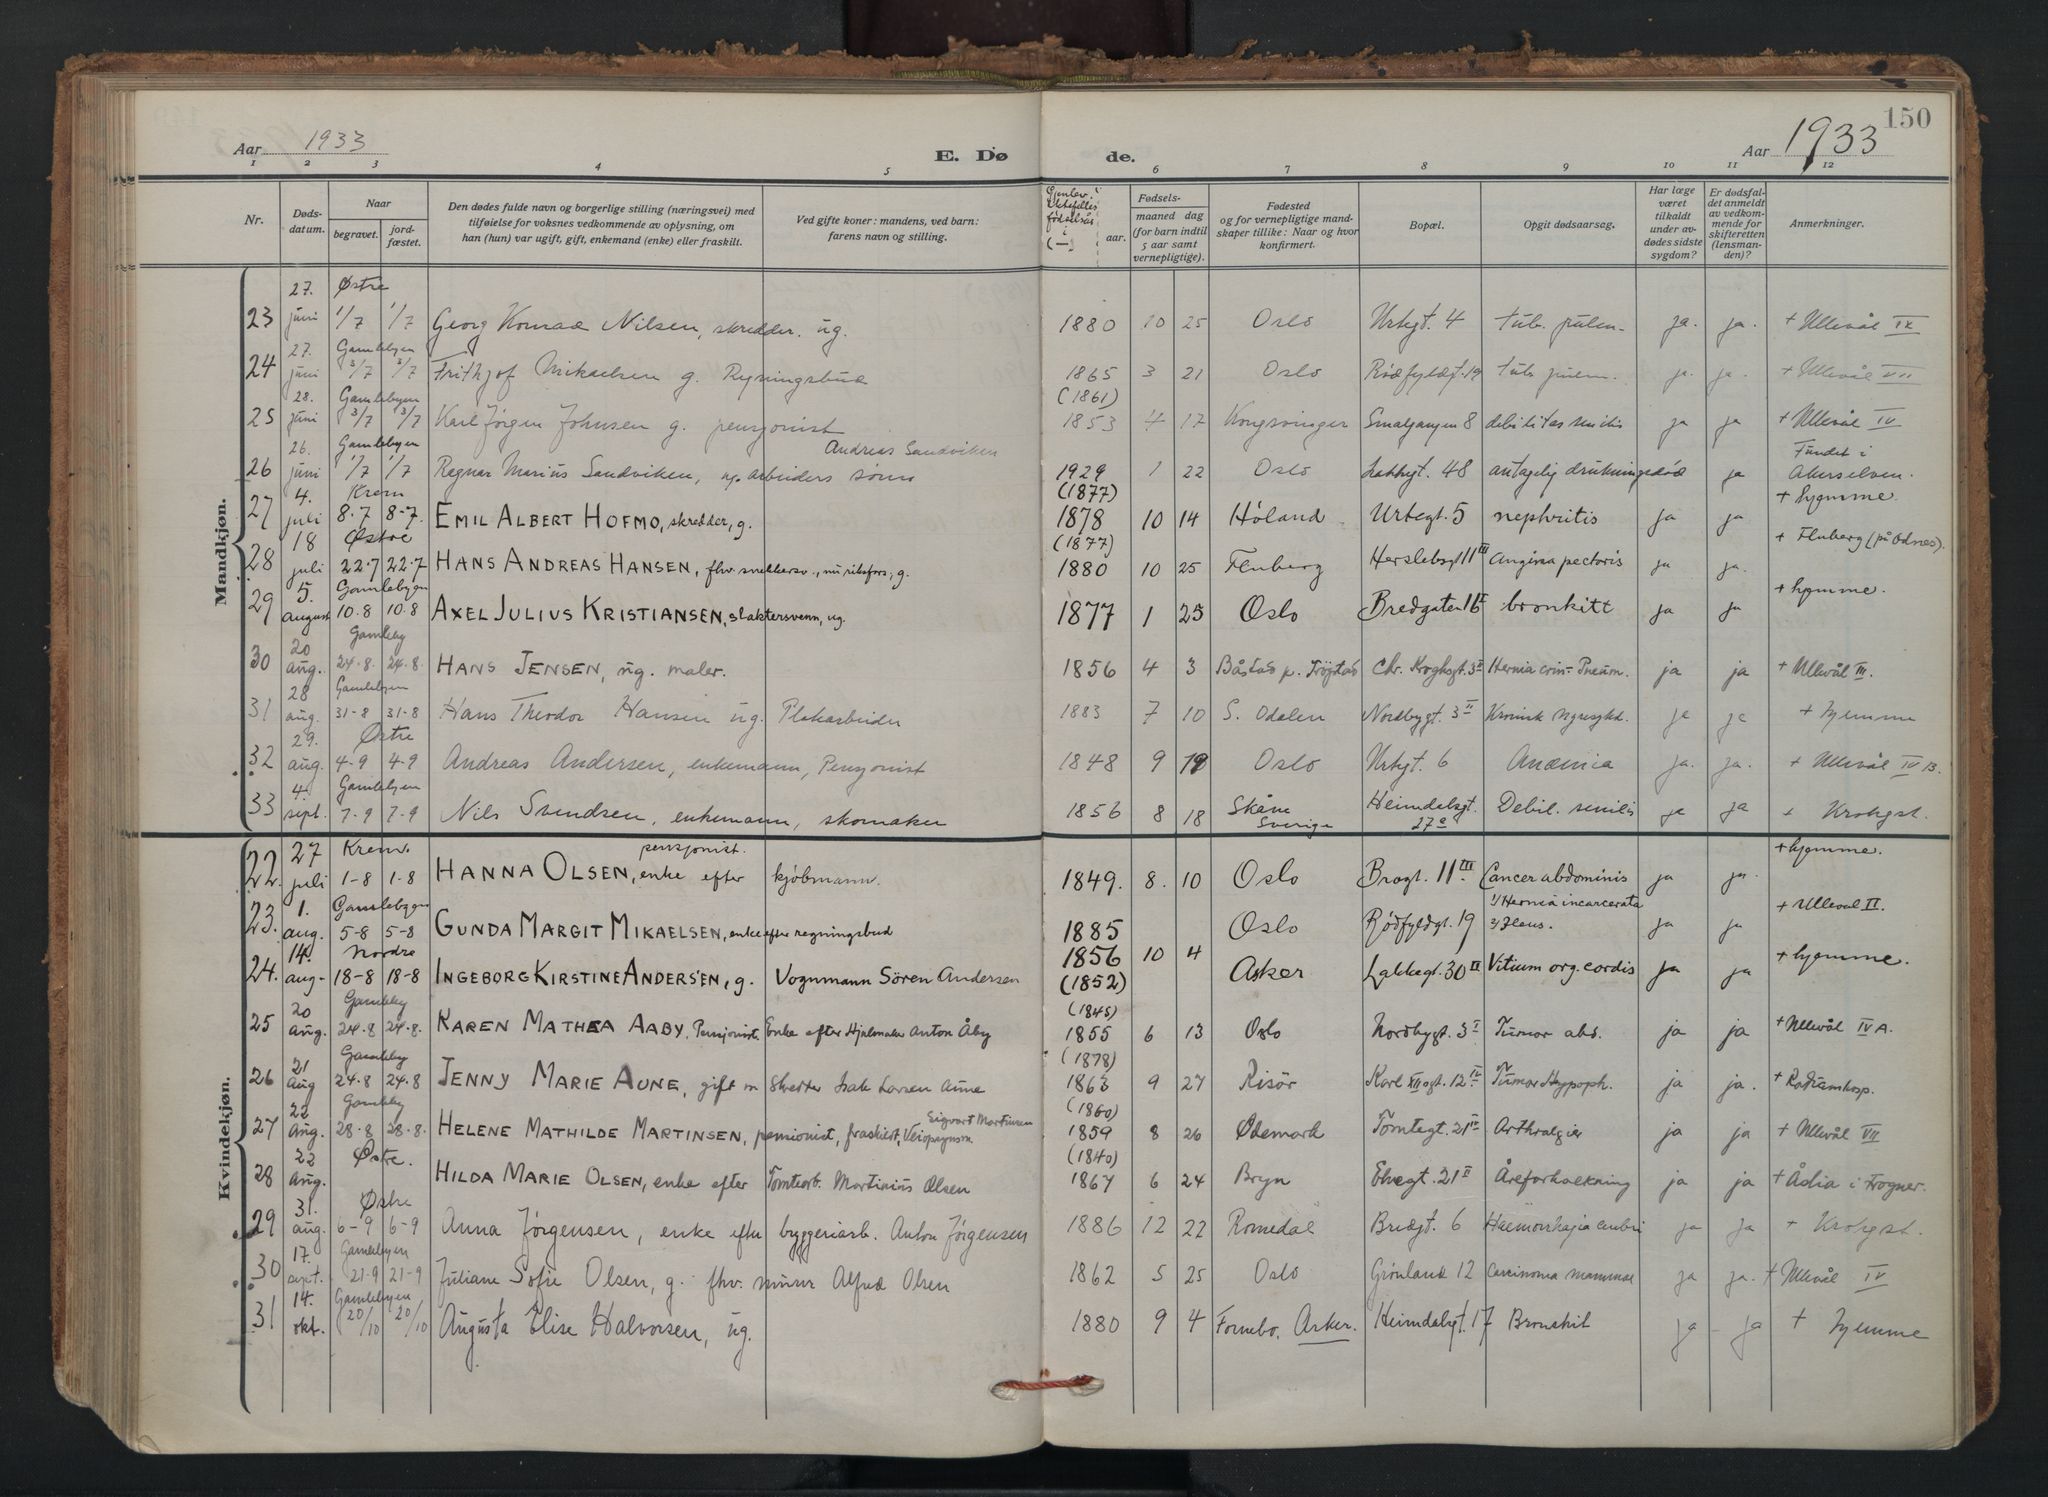 150
Aar 1933
E. Dø de.
Aar 1933
1 2 3 4 5 6 7 8 9 10 11 12
Nr.
Døds-datum.
Naar
begravet.
jord-fæstet.
Den dødes fulde navn og borgerlige stilling (næringsvei) med tilføielse for voksnes vedkommende av oplysning, om han (hun) var ugift, gift, enkemand (enke) eller fraskilt.
Ved gifte koner: mandens, ved barn: farens navn og stilling.
Fødsels-
aar.
maaned dag
(for barn indtil 5 aar samt vernepligtige).
Fødested og for vernepligtige mandskaper tillike: Naar og hvor konfirmert.
Bopæl.
Opgit dødsaarsag.
Har læge været tilkaldt under avdødes sidste sygdom?
Er dødsfaldet anmeldt av vedkommende for skifteretten (lensmanden)?
Anmerkninger.
Mandkjøn.
23 27. juni Østre 1/7 1/7 Georg Konrad Nilsen, skredder. ug. 1880 10 25 Oslo Urtegt. 4 tub. pulm. ja. ja. + Ullevål IX
24 27. juni Gamlebyen 3/7 3/7 Frithjof Mikaelsen g. Regningsbud 1865 3 21 Oslo Rødfyldgt. 19 tub. pulm. ja. ja. + Ullevål VII
25 28. juni Gamlebyen 3/7 3/7 Karl Jørgen Johnsen g. pensjonist (1861) 1853 4 17 Kongsvinger Smalgangen 8 debilitas senilis ja ja + Ullevål IV
26 26. juni Gamlebyen 1/7 1/7 Ragnar Marius Sandviken, ug. arbeiders sønn Andreas Sandviken 1929 1 22 Oslo Lakkegt. 48 antagelig drukningsdød ja Fundet i Akerselven.
27 4. juli Krem 8-7 8-7. EMIL ALBERT HOFMO, skredder, g. (1877) 1878 10 14 Høland Urtegt. 5 nephritis ja ja + hjemme.
28 18 juli Østre 22-7 22-7 HANS ANDREAS HANSEN, fhv. snekkersv., nu riksfors., g. (1877) 1880 10 25 Fluberg Herslebsgt 11 III Angina pectoris ja ja. + Fluberg (på Odnes).
29 5. august Gamlebyen 10-8 10-8 AXEL JULIUS KRISTIANSEN, slaktersvenn, ug. 1877 1 25 Oslo Bredgaten 16 II bronkitt ja ja + hjemme.
30 20 aug. Gamleby 24-8. 24-8. HANS JENSEN, ug. maler. 1856 4 3 Båstad p. Trøgstad Chr. Kroghsgt. 3 II Hernia crur- Pneum. ja ja + Ullevål III.
31 28 aug. Gamlebyen 31-8 31-8 Hans Theodor Hansen ug. Platearbeider 1883 7 10 S. Odalen Nordbygt. 3 II Kronisk nyresykd. ja ja + hjemme
32 29. aug. Østre 4-9 4-9 Andreas Andersen, enkemann, Pensjonist 1848 9 19 Oslo Urtegt. 6 Anæmia ja. ja. + Ullevål IV B.
33 4. sept. Gamlebyen 7-9 7-9 Nils Svendsen, enkemann, skomaker 1856 8 18 Skåne Sverige Heimdalsgt. 27a Debil. senilis ja ja + Krohgst.
Kvindekjøn.
22. 27 juli Krem. 1-8 1-8 HANNA OLSEN, pensjonist. enke efter kjøbmann. 1849. 8. 10 Oslo Brogt. 11 III Cancer abdominis ja ja. + hjemme.
23. 1. aug. Gamlebyen 5-8 5-8 GUNDA MARGIT MIKAELSEN, enke efter regningsbud 1885 Oslo Rødfyldgt. 19 1/ Hernia incarcerata 2/ Ileus. ja ja + Ullevål II.
24. 14. aug- Nordre 18-8 18-8 INGEBORG KIRSTINE ANDERSEN, g. Vognmann Sören Andersen 1856 (1852) 10 4 Asker Lakkegt. 30 II Vitium org. cordis ja ja + hjemme.
25 20 Aug. Gamleby 24-8. 24-8. KAREN MATHEA AABY, Pensjonist. Enke efter Hjulmaker Anton Åby (1845) 1855 6 13 Oslo Nordbygt. 3 I Tumor abd. ja ja + Ullevål IV A.
26 21 Aug Gamleby 24-8 24-8 JENNY MARIE AUNE, gift m skredder Isak Larsen Aune (1878) 1863 9 27 Risör Karl XII gt. 12 IV Tumor Hypoph. ja ja. + Radiumhosp.
27 22 Aug. Gamleby 28-8 28-8. HELENE MATHILDE MARTINSEN, pensionist, fraskilt, Veiopsynsm Sigvart Martinsen (1860) 1859 8 26 Ødemark Tomtegt. 21 IV Arthralgier ja ja + Ullevål VII
28 22 Aug. Østre. HILDA MARIE OLSEN, enke efter Tomtearb. Martinius Olsen (1840) 1867 6 24 Bryn Elvegt. 21 II Åreforkalkning ja ja + Ådia i Frogner.
29 31. aug. Østre 6-9 6-9 Anna Jørgensen, enke efter byggeriarb. Anton Jørgensen 1886 12 22 Romedal Bredgt. 6 Haemorrhagia cerebri ja ja + Krohgst.
30 17. sept. Gamlebyen 21-9 21-9 Juliane Sofie Olsen, g. fhv. murer Alfred Olsen 1862 5 25 Oslo Grønland 12 Carcinoma mammae ja ja. + Ullevål IV
31 14. okt. Gamlebyen 20/10 20/10 Augusta Elise Halvorsen, ug. 1880 9 4 Fornebo, Asker. Heimdalsgt. 17 Bronskit ja ja + hjemme